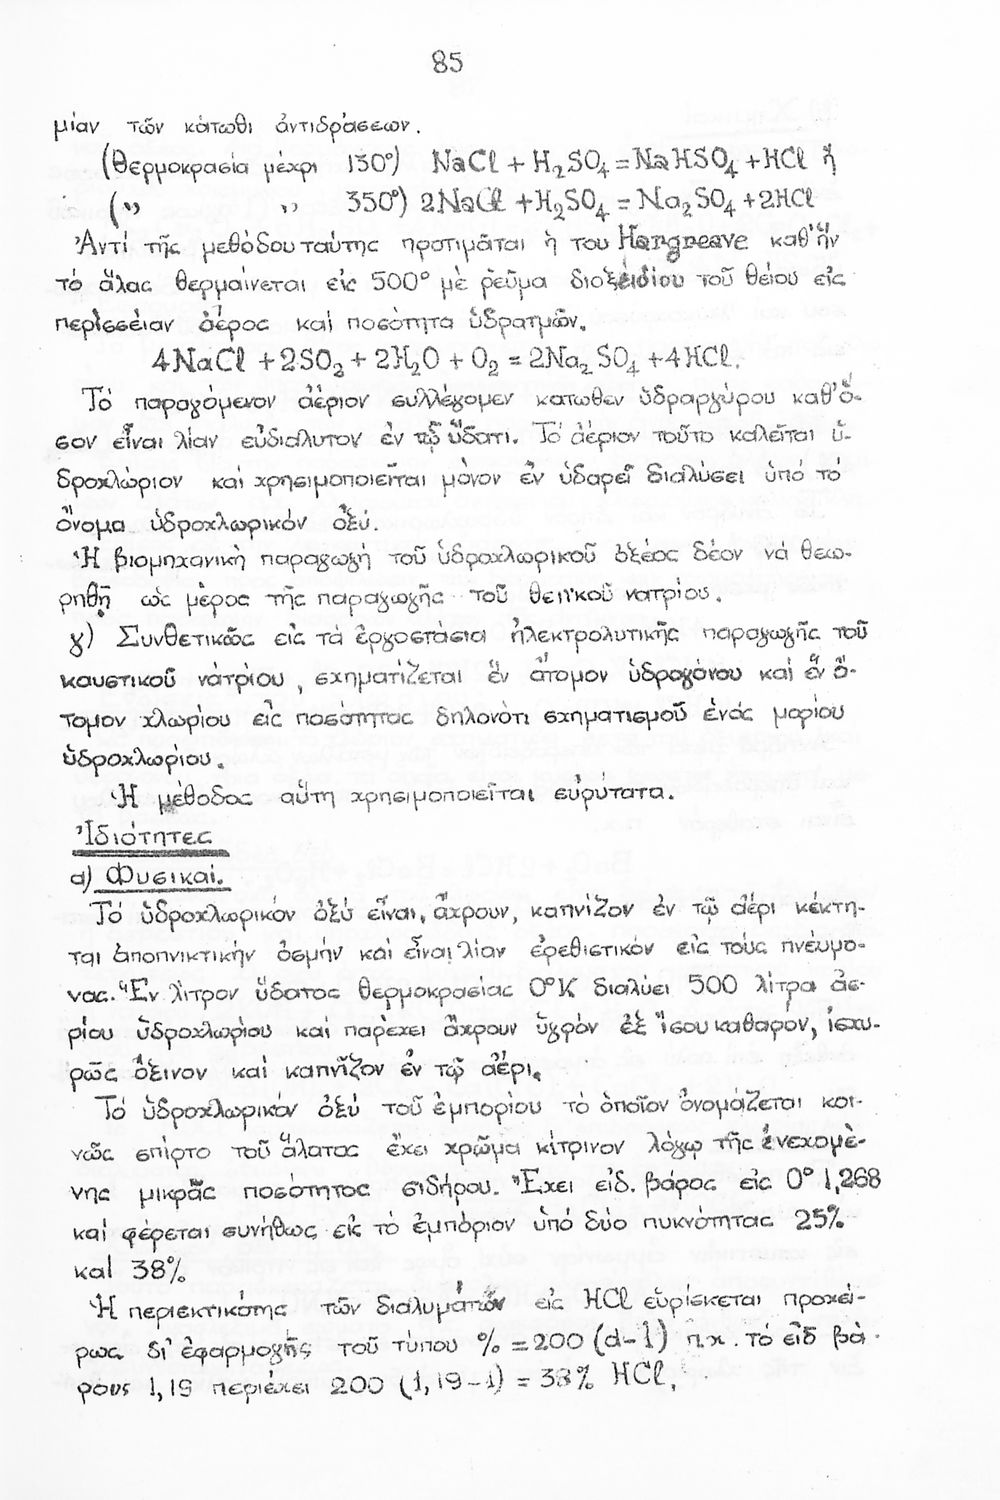 85
μίαν τῶν κάτωθι ἀντιδράσεων.
(Θερμοκρασία μέχρι 150°) NaCl + H₂SO₄ = NaHSO₄ + HCl ἤ
( ,, ,, 350°) 2NaCl + H₂SO₄ = Na₂SO₄ + 2HCl
Ἀντί τῆς μεθόδου ταύτης προτιμᾶται ἡ του Hargreave καθ' ἥν
τό ἅλας θερμαίνεται εἰς 500° μὲ ῥεῦμα διοξειδίου τοῦ θείου εἰς
περίσσειαν ἀέρος καί ποσότητα ὑδρατμῶν.
4NaCl + 2SO₂ + 2H₂O + O₂ = 2Na₂SO₄ + 4HCl.
Τό παραγόμενον ἀέριον συλλέγομεν κατωθεν ὑδραργύρου καθ' ὅ-
σον εἶναι λίαν εὐδιάλυτον ἐν τῷ ὕδατι. Τό ἀέριον τοῦτο καλεῖται ὑ-
δροχλώριον καί χρησιμοποιεῖται μόνον ἐν ὑδαρεῖ διαλύσει ὑπό τό
ὄνομα ὑδροχλωρικόν ὀξύ.
Ἡ βιομηχανικὴ παραγωγή τοῦ ὑδροχλωρικοῦ ὀξέος δέον νά θεω-
ρηθῇ ὡς μέρος τῆς παραγωγῆς τοῦ θειικοῦ νατρίου.
γ) Συνθετικῶς εἰς τά ἐργοστάσια ἠλεκτρολυτικῆς παραγωγῆς τοῦ
καυστικοῦ νάτρίου, σχηματίζεται ἕν ἄτομον ὑδρογόνου καί ἕν ἄ-
τομον χλωρίου εἰς ποσότητας δηλονότι σχηματισμοῦ ἑνός μορίου
ὑδροχλωρίου.
Ἡ μέθοδος αὕτη χρησιμοποιεῖται εὐρύτατα.
Ἰδιότητες
α) Φυσικαί.
Τό ὑδροχλωρικόν ὀξύ εἶναι, ἄχρουν, καπνίζον ἐν τῷ ἀέρι κέκτη-
ται ἀποπνικτικήν ὀσμήν καί εἶναι λίαν ἐρεθιστικόν εἰς τούς πνέυμο-
νας. Ἕν λίτρον ὕδατος θερμοκρασίας 0°Κ διαλύει 500 λίτρα ἀε-
ρίου ὑδροχλωρίου καί παρέχει ἄχρουν ὑγρόν ἐξ ἴσου καθαρόν, ἰσχυ-
ρῶς ὄξινον καί καπνῖζον ἐν τῷ ἀέρι.
Τό ὑδροχλωρικόν ὀξύ τοῦ ἐμπορίου τό ὁποῖον ὀνομάζεται κοι-
νῶς σπίρτο τοῦ ἅλατος ἔχει χρῶμα κίτρινον λόγῳ τῆς ἐνεχομέ-
νης μικρᾶς ποσότητος σιδήρου. Ἔχει εἰδ. βάρος εἰς 0° 1,268
καί φέρεται συνήθως εἰς τό ἐμπόριον ὑπό δύο πυκνότητας 25%
καί 38%
Ἡ περιεκτικότης τῶν διαλυμάτων εἰς HCl εὑρίσκεται προχεί-
ρως δι' ἐφαρμογῆς τοῦ τύπου % = 200 (d-1) π.χ. τό εἰδ βά-
ρους 1,19 περιέχει 200 (1,19-1) = 38% HCl.